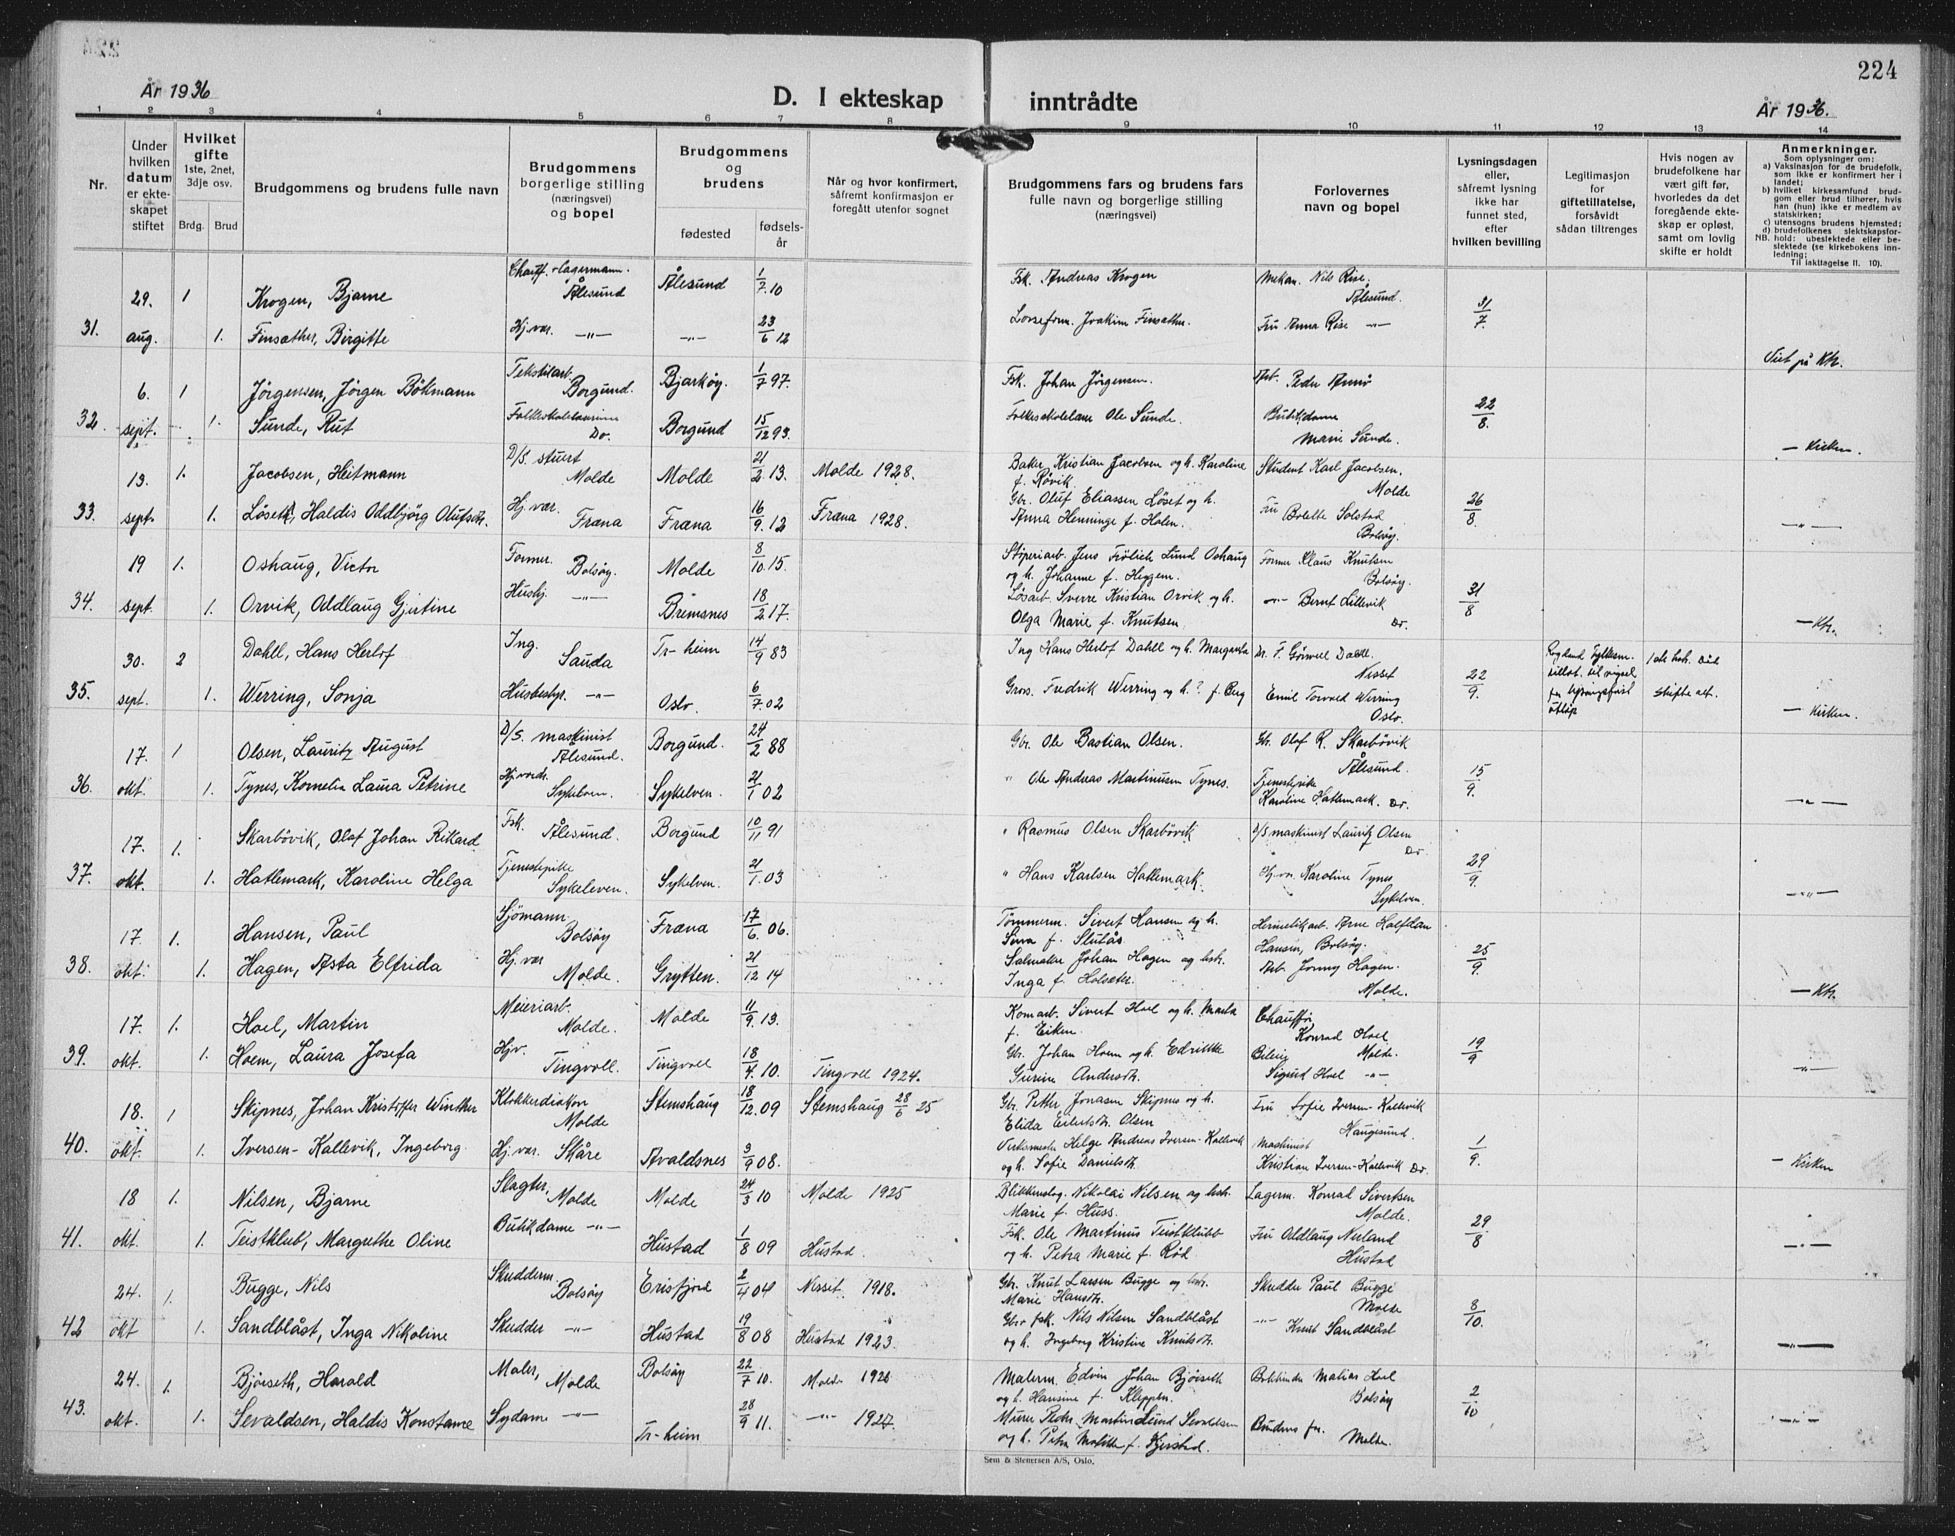 224
År 1936
D. I ekteskap
inntrådte
År 1936.
1 2 3 4 5 6 7 8 9 10 11 12 13 14
Nr.
Under hvilken datum er ekte- skapet stiftet
Hvilket gifte 1ste, 2net, 3dje osv.
Brdg. Brud
Brudgommens og brudens fulle navn
Brudgommens borgerlige stilling (næringsvei) og bopel
Brudgommens og brudens
fødested
fødsels- år
Når og hvor konfirmert, såfremt konfirmasjon er foregått utenfor sognet
Brudgommens fars og brudens fars fulle navn og borgerlige stilling (næringsvei)
Forlovernes navn og bopel
Lysningsdagen eller, såfremt lysning ikke har funnet sted, efter hvilken bevilling
Legitimasjon for giftetillatelse, forsåvidt sådan tiltrenges
Hvis nogen av brudefolkene har vært gift før, hvorledes da det foregående ekte- skap er opløst, samt om lovlig skifte er holdt
Anmerkninger.
Som oplysninger om:
a) Vaksinasjon for de brudefolk, som ikke er konfirmert her i landet;
b) hvilket kirkesamfund brud- gom eller brud tilhører, hvis han (hun) ikke er medlem av statskirken;
c) utensogns brudens hjemsted;
d) brudefolkenes slektskapsfor- hold: ubeslektede eller be- slektede (se kirkebokens inn- ledning;
NB.
Til iakttagelse II. 10).
29. 1 Krogen, Bjarne Chauff. - lagermann. Ålesund Ålesund 1/7 10 Fsk. Andreas Krogen Mekan. Nils Rise, Ålesund. 31/7
31. aug. 1. Finsæther, Birgitte Hj.vær. —"— —"— 23/6 12 Joakim Finsæther. Fru Anna Rise —"— Viet på Ktr.
6. 1 Jörgensen, Jörgen Böhmann Tekstilarb. Borgund. Bjarköy. 1/7 97. Fsk. Johan Jörgensen. Arb. Peder
32. sept. 1. Sunde, Rut Folkeskolelærerinne Do. Borgund 15/12 93. Folkeskolelærer Ole Sunde. Butikdame Marie Sunde. 22/8. — Kirken.
13. 1. Jacobsen, Heitmann D/S. stuert Molde Molde 21/2 13. Molde 1928. Baker Kristian Jacobsen og h. Karoline f. Røvik. Student Karl Jacobsen. Molde
33. sept. 1. Løseth, Haldis Oddbjörg Olufsdtr. Hj. vær. Fræna Fræna 16/9 12 Fræna 1928. Gbr. Oluf Eliassen Løset og h. Anna Henninge f. Holen. Fru Bolette Solstad Bolsöy. 26/8 —"—
19 1. Oshaug, Victor Former. Bolsöy. Molde 8/10 15. Støperiarb. Jens Frölich Lund Oshaug og h. Johanne f. Heggem. Former Klaus Knutsen Bolsöy.
34. sept. 1. Orvik, Oddlaug Gjertine Hushj. —"— Bremsnes 18/2 17. Løsarb. Sverre Kristian Orvik og h. Olga Marie f. Knutsen. —"— Bernt Lillevik Do. 31/8 — Ktr.
30. 2 Dahll, Hans Herlof Ing. Sauda Tr-heim 14/9 83 Ing Hans Herlof Dahll og h. Margareta Dr. F. Görvell Dahll. Nesset
35. sept. 1. Werring, Sonja Husbestyr. —"— Oslo. 6/7 02 Gros. Fredrik Werring og h. ? f. Berg Emil Torvald Werring Oslo. 22/9. Rogaland Fylkesm. tillat. til vigsel før lysningsfrist utløp 1 ste hust. död skifte avt. — Kirken.
17. 1 Olsen, Lauritz August D/S. maskinist Ålesund. Borgund. 24/2 88 Gbr. Ole Bastian Olsen. Gbr. Olaf R. Skarbövik Ålesund.
36. okt. 1. Tynes, Kornelia Laura Petrine Sykelven. Sykelven. 21/1 02 " Ole Andreas Martinusen Tynes. Tjenestepike Karoline Hatlemark. Do. 15/9. —"—
17. 1. Skarbövik, Olaf Johan Rikard Fsk. Ålesund. Borgund 10/11 91 " Rasmus Olsen Skarbövik D/S maskinist Lauritz Olsen Do.
37. okt. 1. Hatlemark, Karoline Helga Tjenestepike Sykelven. Sykelven. 21/1 03 " Hans Karlsen Hatlemark. Hj. vær Karoline Tynes Sykelven 29/9. —"—
17. 1. Hansen, Paul Sjömann. Bolsöy Fræna 17/6. 06. Tømmerm. Sivert Hansen og h. f. Slutås Hermetikarb. Arne Halfdan Hansen, Bolsöy.
38. okt. 1. Hagen, Asta Elfrida Hj. vær Molde. Grytten. 21/12 14 Salmaker Johan Hagen og hst. Inga f. Holsæter. Arb. Jonny Hagen. Molde. 25/9. — Ktr.
17. 1. Hoel, Martin Meieriarb. Molde. Molde 11/9. 13. Sivert Hoel og h. Marta f. Eiken. Chauffør Konrad Hoel Molde.
39. okt. 1. Hoem, Laura Josefa Hjv. Tingvoll. Tingvoll 18/4. 10. Tingvoll 1924. Gbr. Johan Hoem og h. Edrikke Gurine Andersdtr. Sigurd Hoel —"— 19/9 —"—
18. 1 Skipnes, Johan Kristoffer Winther Klokkerdiakon Molde Stemshaug 18/12. 09 Stemshaug 28/6 25 Gbr. Petter Jonasen Skipnes og h. Elida Eilertsdtr. Olsen Fru Sofie Iversen-Kallevik Haugesund.
40. okt. 1. Iversen-Kallevik, Ingeborg. Hj. vær. Skåre Avaldsnes 3/9 08. Verksmester Helge Andreas Iversen-Kallevik og h. Sofie Danielsdtr. Maskinist Kristian Iversen-Kallevik Do. 1/9. — Kirken
18 1. Nilsen, Bjarne Slagter, Molde Molde 24/3 10 Molde 1925 Blikkenslag. Nikolai Nilsen og hst. Marie f. Huss. Lagerm. Konrad Sivertsen Molde.
41. okt. 1. Teistklub, Margrethe Oline Butikdame —"— Hustad 1/8 09 Hustad. Fsk. Ole Martinus Teistklubb og h. Petra Marie f. Röd Fru Oddlaug Nerland Hustad 29/8 —"—
24. 1. Bugge, Nils Skredderm. Bolsöy Erisfjord 2/4 04 Nesset 1918. Gbr. Knut Larsen Bugge og hst. Marie Hansdtr. Skredder Paul Bugge Molde
42 okt 1. Sandblåst, Inga Nikoline Skredder —"— Hustad 19/8 08 Hustad 1923. Gbr. fsk. Nils Nilsen Sandblåst og h. Ingeborg Kristine Knutsdtr. —"— Knut Sandblåst 8/10. —"—
24. 1. Bjørseth, Harald Maler, Molde Bolsöy 22/7 10. Molde 192 Malerm. Edvin Johan Bjørseth og h. Hansine f. Kleppen. Matias Hoel Bolsöy
43. okt. 1. Sevaldsen, Haldis Konstanse Sydame —"— Tr-heim 28/9 11. —"— 1927. Murer Peder Martin Lund Sevaldsen og h. Petra f. Gjerstad. Brudens far. Molde. 2/10 —"—
Sem & Stenersen A/S, Oslo.